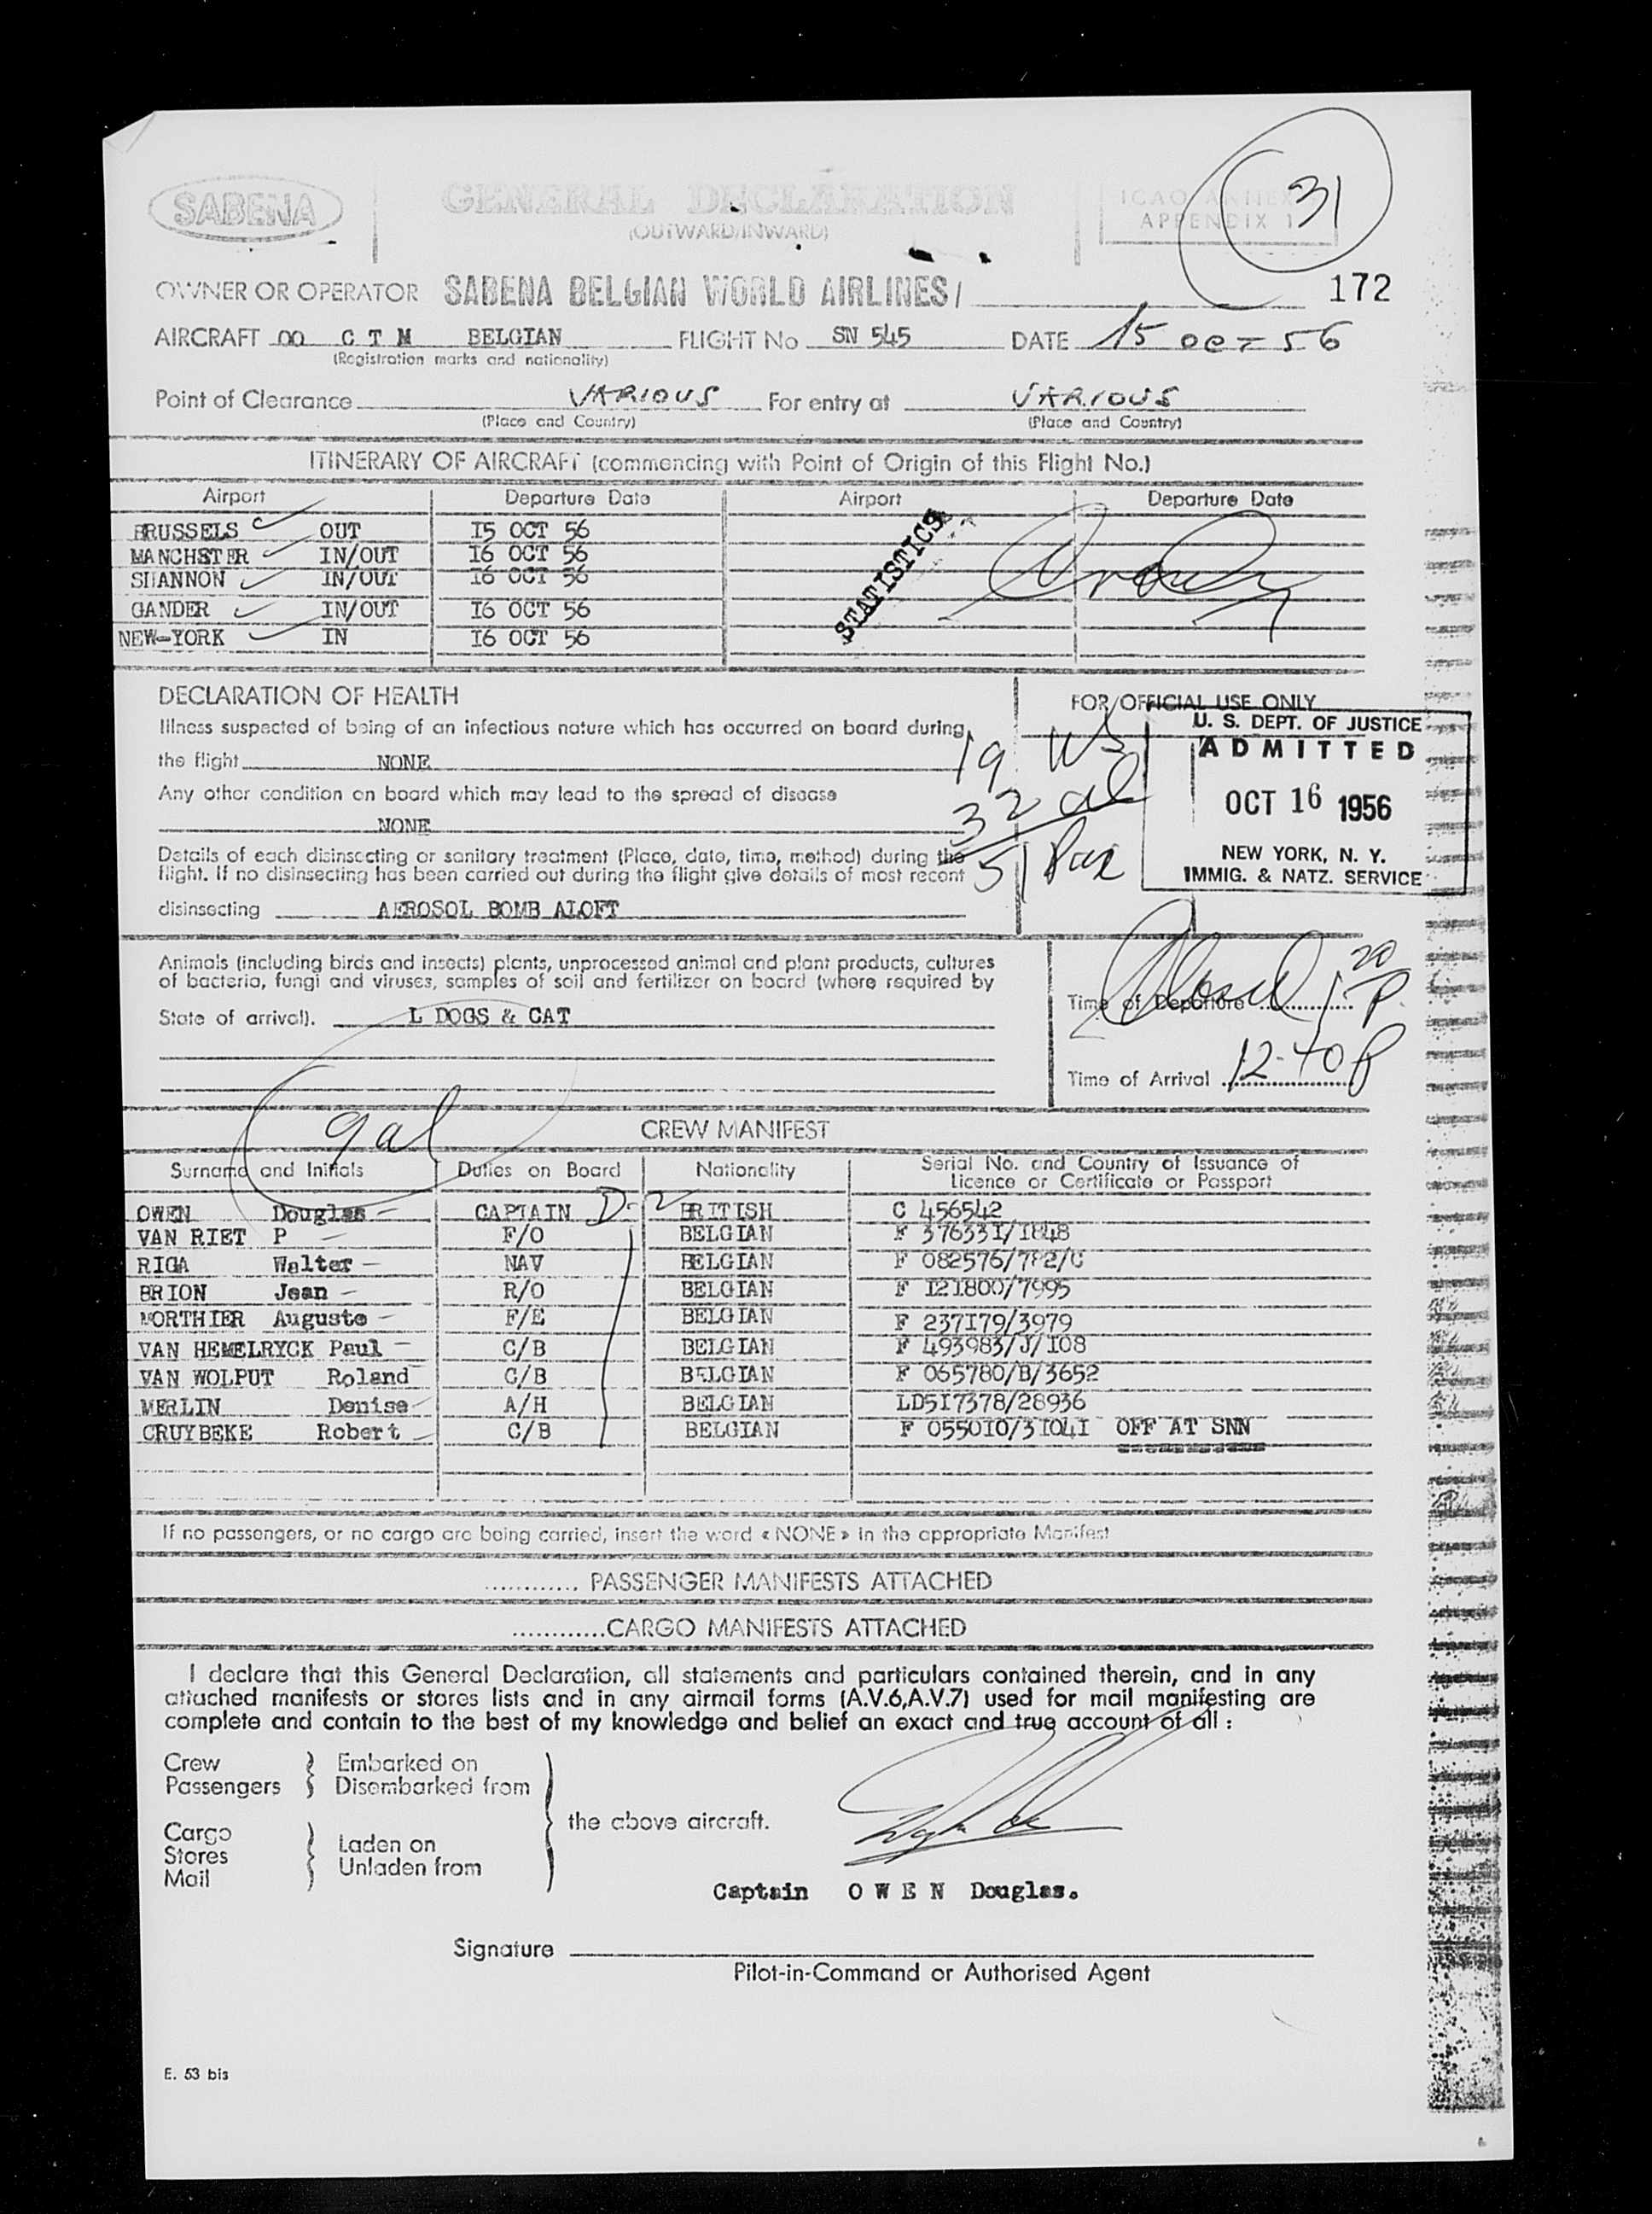 SABENA
GENERAL DECLARATION
(OUTWARD/INWARD)
ICAO ANNEX
APPENDIX 1
31
OWNER OR OPERATOR SABENA BELGIAN WORLD AIRLINES/
172
AIRCRAFT OO C T M BELGIAN FLIGHT No SN 545 DATE 15 OCT 56
(Registration marks and nationality)
Point of Clearance VARIOUS For entry at VARIOUS
(Place and Country) (Place and Country)
ITINERARY OF AIRCRAFT (commencing with Point of Origin of this Flight No.)
Airport Departure Date Airport Departure Date
BRUSSELS OUT I5 OCT 56
MANCHSTER IN/OUT I6 OCT 56
SHANNON IN/OUT I6 OCT 56
GANDER IN/OUT I6 OCT 56
NEW-YORK IN I6 OCT 56
STATISTICS
DECLARATION OF HEALTH
Illness suspected of being of an infectious nature which has occurred on board during
the flight NONE
Any other condition on board which may lead to the spread of disease
NONE
Details of each disinsecting or sanitary treatment (Place, date, time, method) during the
flight. If no disinsecting has been carried out during the flight give details of most recent
disinsecting AEROSOL BOMB ALOFT
FOR OFFICIAL USE ONLY
19 US
32 al
51 Pax
U. S. DEPT. OF JUSTICE
ADMITTED
OCT 16 1956
NEW YORK, N. Y.
IMMIG. & NATZ. SERVICE
Animals (including birds and insects) plants, unprocessed animal and plant products, cultures
of bacteria, fungi and viruses, samples of soil and fertilizer on board (where required by
State of arrival). L DOGS & CAT
Time of Departure Closed 1 20 P.
Time of Arrival 12-40 P
9 al
CREW MANIFEST
Surname and Initials Duties on Board Nationality Serial No. and Country of Issuance of
Licence or Certificate or Passport
OWEN Douglas CAPTAIN D-2 BRITISH C 456542
VAN RIET P F/O BELGIAN F 37633I/1848
RIGA Walter NAV BELGIAN F 082576/782/C
BRION Jean R/O BELGIAN F I21800/7995
MORTHIER Auguste F/E BELGIAN F 237I79/3979
VAN HEMELRYCK Paul C/B BELGIAN F 493983/J/I08
VAN WOLPUT Roland C/B BELGIAN F 065780/B/3652
MERLIN Denise A/H BELGIAN LD5I7378/28936
CRUYBEKE Robert C/B BELGIAN F 0550I0/3I04I OFF AT SNN
If no passengers, or no cargo are being carried, insert the word « NONE » in the appropriate Manifest
............ PASSENGER MANIFESTS ATTACHED
............CARGO MANIFESTS ATTACHED
I declare that this General Declaration, all statements and particulars contained therein, and in any
attached manifests or stores lists and in any airmail forms (A.V.6,A.V.7) used for mail manifesting are
complete and contain to the best of my knowledge and belief an exact and true account of all :
Crew Embarked on
Passengers Disembarked from
the above aircraft.
Cargo
Stores Laden on
Mail Unladen from
Captain O W E N Douglas.
Signature
Pilot-in-Command or Authorised Agent
E. 53 bis